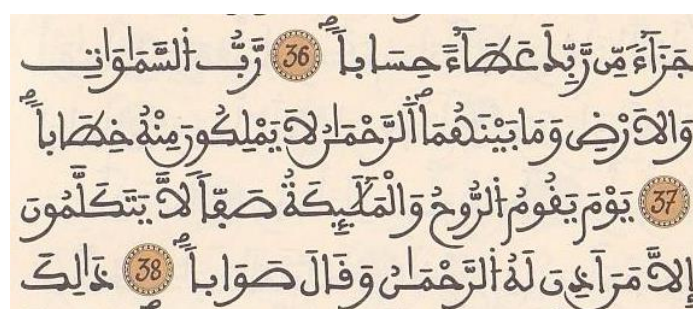 جَزَآءٗ مِّن رَّبِّكَ عَطَآءً حِسَاباٗ 36 رَّبُّ اُ۬لسَّمَٰوَٰتِ
وَالَارْضِ وَمَا بَيْنَهُمَا اَ۬لرَّحْمَٰنُ لَا يَمْلِكُونَ مِنْهُ خِطَاباٗ
37 يَوْمَ يَقُومُ اُ۬لرُّوحُ وَالْمَلَٰٓئِكَةُ صَفّاٗ لَّا يَتَكَلَّمُونَ
إِلَّا مَنَ اَذِنَ لَهُ اُ۬لرَّحْمَٰنُ وَقَالَ صَوَاباٗ 38 ذَٰلِكَ